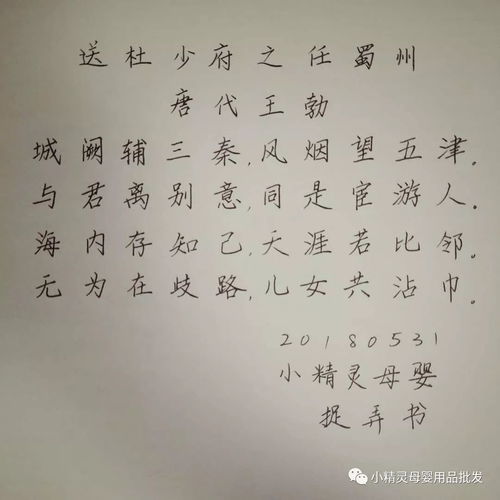 送杜少府之任蜀州
唐代王勃
城阙辅三秦,风烟望五津.
与君离别意,同是宦游人.
海内存知己,天涯若比邻.
无为在歧路,儿女共沾巾.
20180531
小精灵母婴
捉弄书
小精灵母婴用品批发